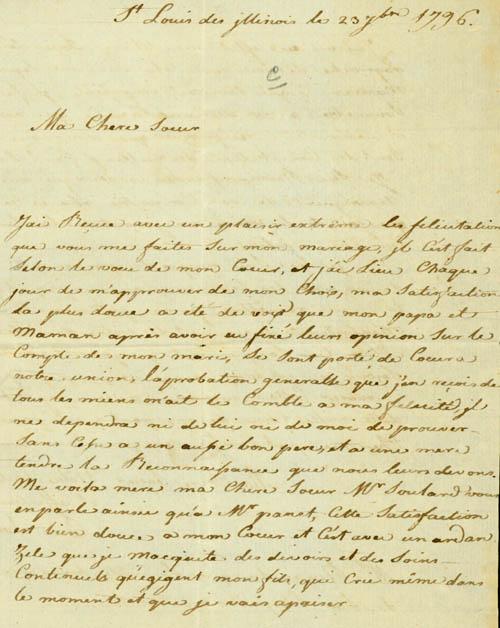 St Louis des illinois le 23 7bre 1796.
e
Ma Chere Soeur
J'ai Recue avec un plaisir extrême les felicitation
que vous me faites sur mon mariage, il c'est fait
selon le voeu de mon Coeur, et j'ai Lieu Chaque
jour de m'approuver de mon Choix, ma Satisfaction
la plus douce a été de voir que mon papa et
Maman après avoir eu fixé leurs opinion sur le
Compte de mon maris, se sont porté de Coeur a
notre union, l'aprobation generalle que j'en recois de
tous les miens on'ait le Comble a ma felicité, il
ne dependra ni de lui ni de moi de prouver
sans Cesse a un aussi bon pere, et a une mere
tendre la Reconnaissance que nous leurs devons.
Me voila mere ma Chere Soeur Mr Soulard vous
en parle ainsi qu'a Mr panet, Cette Satisfaction
est bien douce a mon Coeur et C'est avec un ardan
Zele que je m'acquite des devoirs et des Soins
Continuels qu'egigent mon fils, qui Crie même dans
le moment et que je vais apaiser.